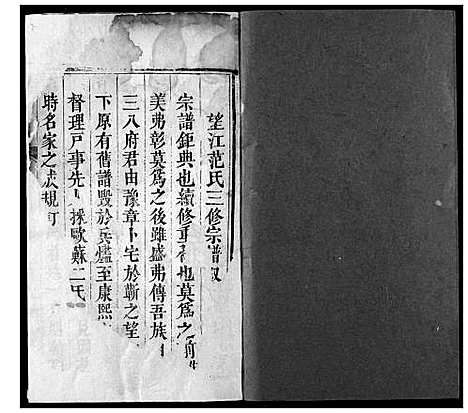 望江范氏三修宗譜叙
宗譜鉅典也續修重者也莫為之前
美弗彰莫為之後雖盛弗傳吾族自
三八府君由豫章卜宅於蘄之望
下原有舊譜毀於兵燼至康熙
督理戸事先人採歐蘇二氏
時名家之成規訂